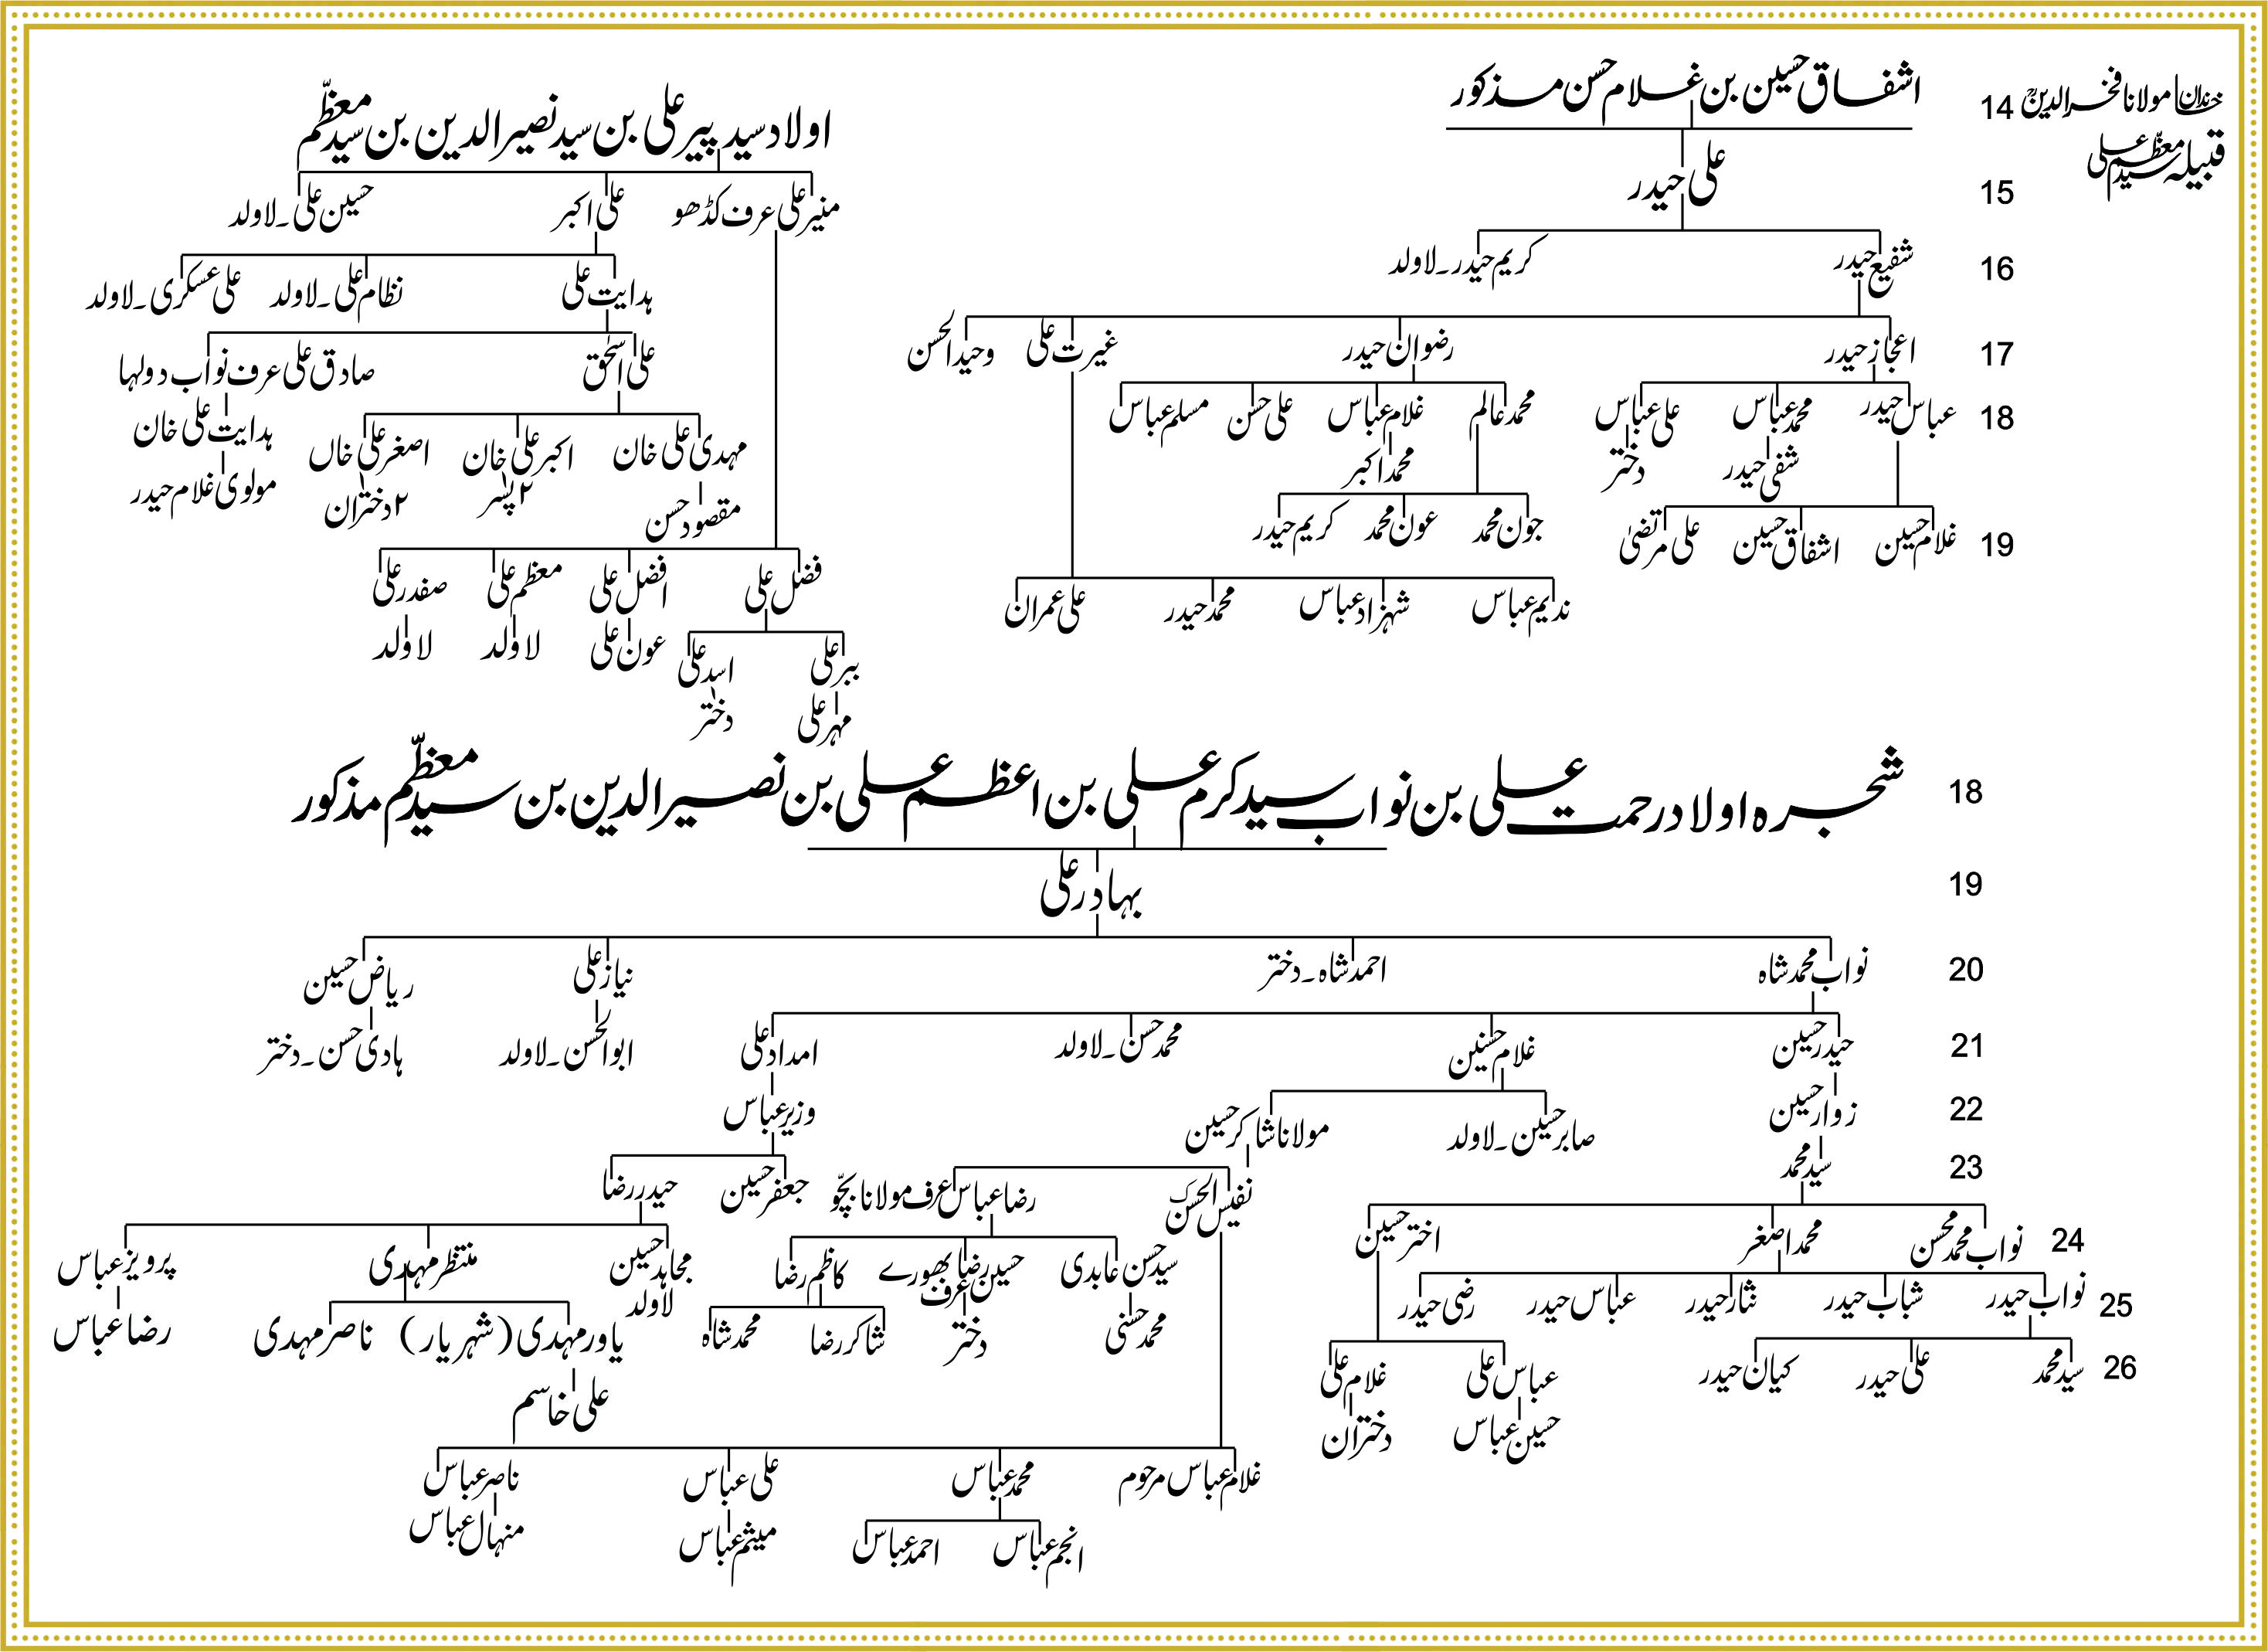 خاندان مولانا فخرالدینؒ
قبیلہ سید معظّم علی
14
اشفاق حسین بن غلام حسن مذکور
15
علی حیدر
16
شفیع حیدر
کریم حیدر۔لاولد
17
اعجاز حیدر
رضوان حیدر
غیرت علی
وحید الحسن
18
عباس حیدر
محمد عباس
علی عباس
محمد عالم
غلام عباس
علی حسن
مسلم عباس
شفی حیدر
دختر
محمد اکبر
19
غلام حسین
اشفاق حسین
علی مرتضیٰ
جون محمد
عون محمد
کریم حیدر
ندیم عباس
شہزاد عباس
محمد حیدر
علی عمران
اولاد سید پیر علی بن سید نصیر الدین بن سید معظّم
منیر علی عرف کڈھو
علی اکبر
حسین علی۔لاولد
ہدایت علی
نظام علی۔لاولد
علی عسکری۔لاولد
علی اسحٰق
صادق علی عرف نواب دولہا
مہدی علی خان
اکبر علی خان
اصغر علی خاں
ہدایت علی خان
مقصود حسن
۲ پسر
۲ دختران
مولوی غلام حیدر
فضل علی
افضل علی
معظم علی
صفدر علی
ببر علی
اسد علی
عون علی
لاولد
لاولد
مہر علی
دختر
18
شجرہ اولاد رحمت علی بن نواب سید کرم علی بن اعظم علی بن نصیر الدین بن سید معظّم مذکور
19
بہادر علی
20
نواب محمد شاہ
احمد شاہ۔دختر
نیاز علی
ریاض حسین
21
حیدر حسین
غلام حسنین
محمد حسن۔لاولد
امداد علی
ابوالحسن۔لاولد
ہادی حسن۔دختر
22
زوار حسین
صابر حسین۔لاولد
مولانا شاکر حسین
وزیر عباس
23
سید محمد
نفیس الحسن
رضا عباس عرف مولانا بچّو
جعفر حسین
حیدر رضا
24
نواب محمد محسن
محمد اصغر
اختر حسین
سید حسن عابدی
حسین رضا عرف بھورے
کاظم رضا
مجاہد حسین
لاولد
منتظر مہدی
پرویز عباس
25
نواب حیدر
شباب حیدر
نثار حیدر
عباس حیدر
رضی حیدر
محمد حسنی
دختر
شاکر رضا
محمد شاہ
یاور مہدی (شہر یار)
ناصر مہدی
رضا عباس
26
سید محمد
علی حیدر
کیان حیدر
عباس علی
غلام علی
حسین عباس
دختران
علی خاسم
غلام عباس مرحوم
محمد عباس
علی عباس
ناصر عباس
انجم عباس
احمد عباس
میثم عباس
منہال عباس